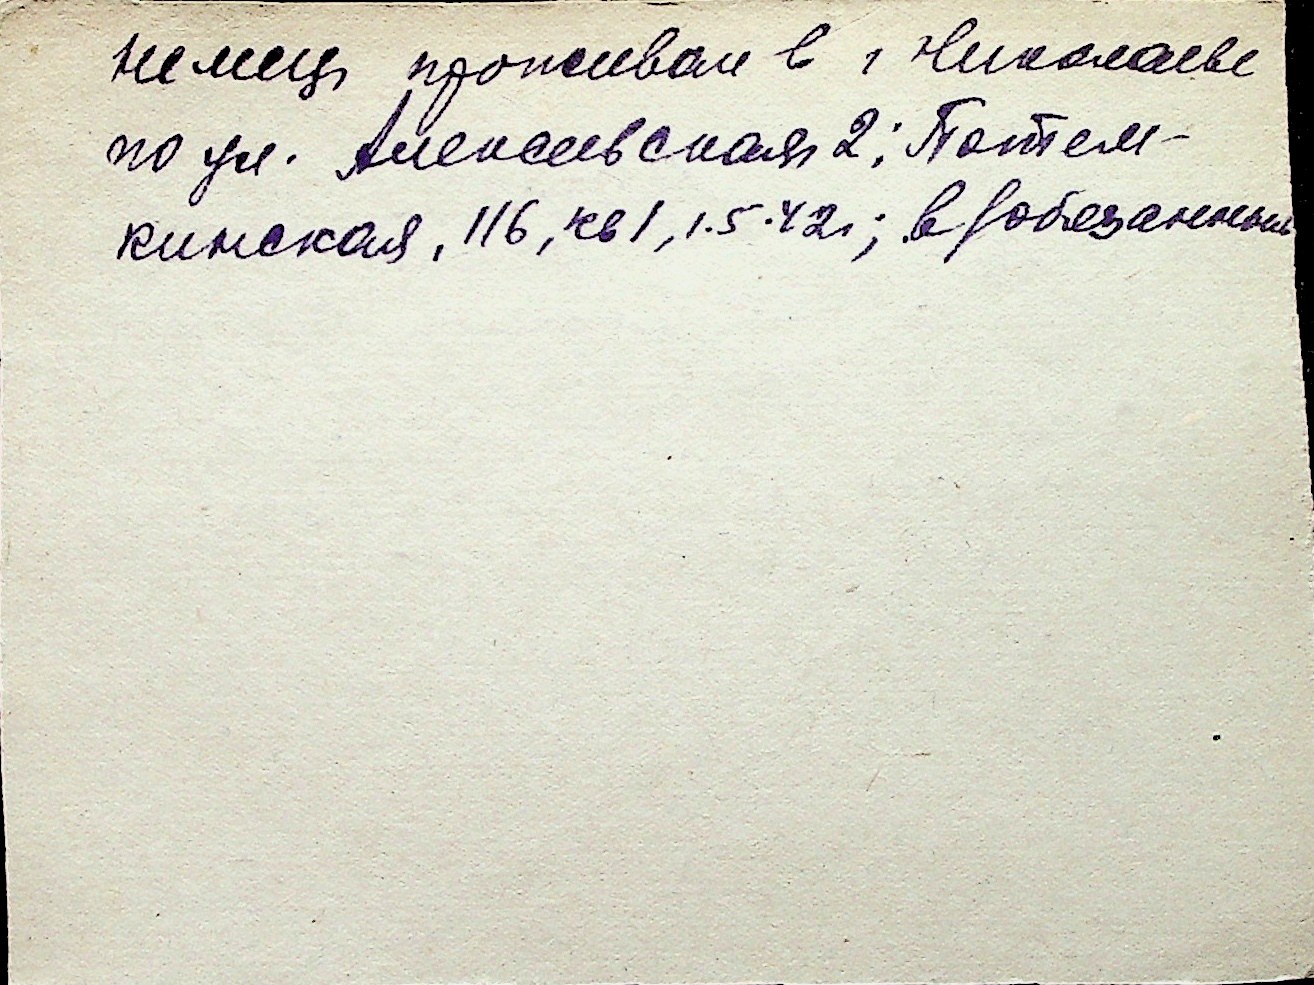 немец, проживал в г Николаеве
по ул. Алексеевская 2; Потем-
кинская, 116, кв 1, 1.5.42г; в/обязанный